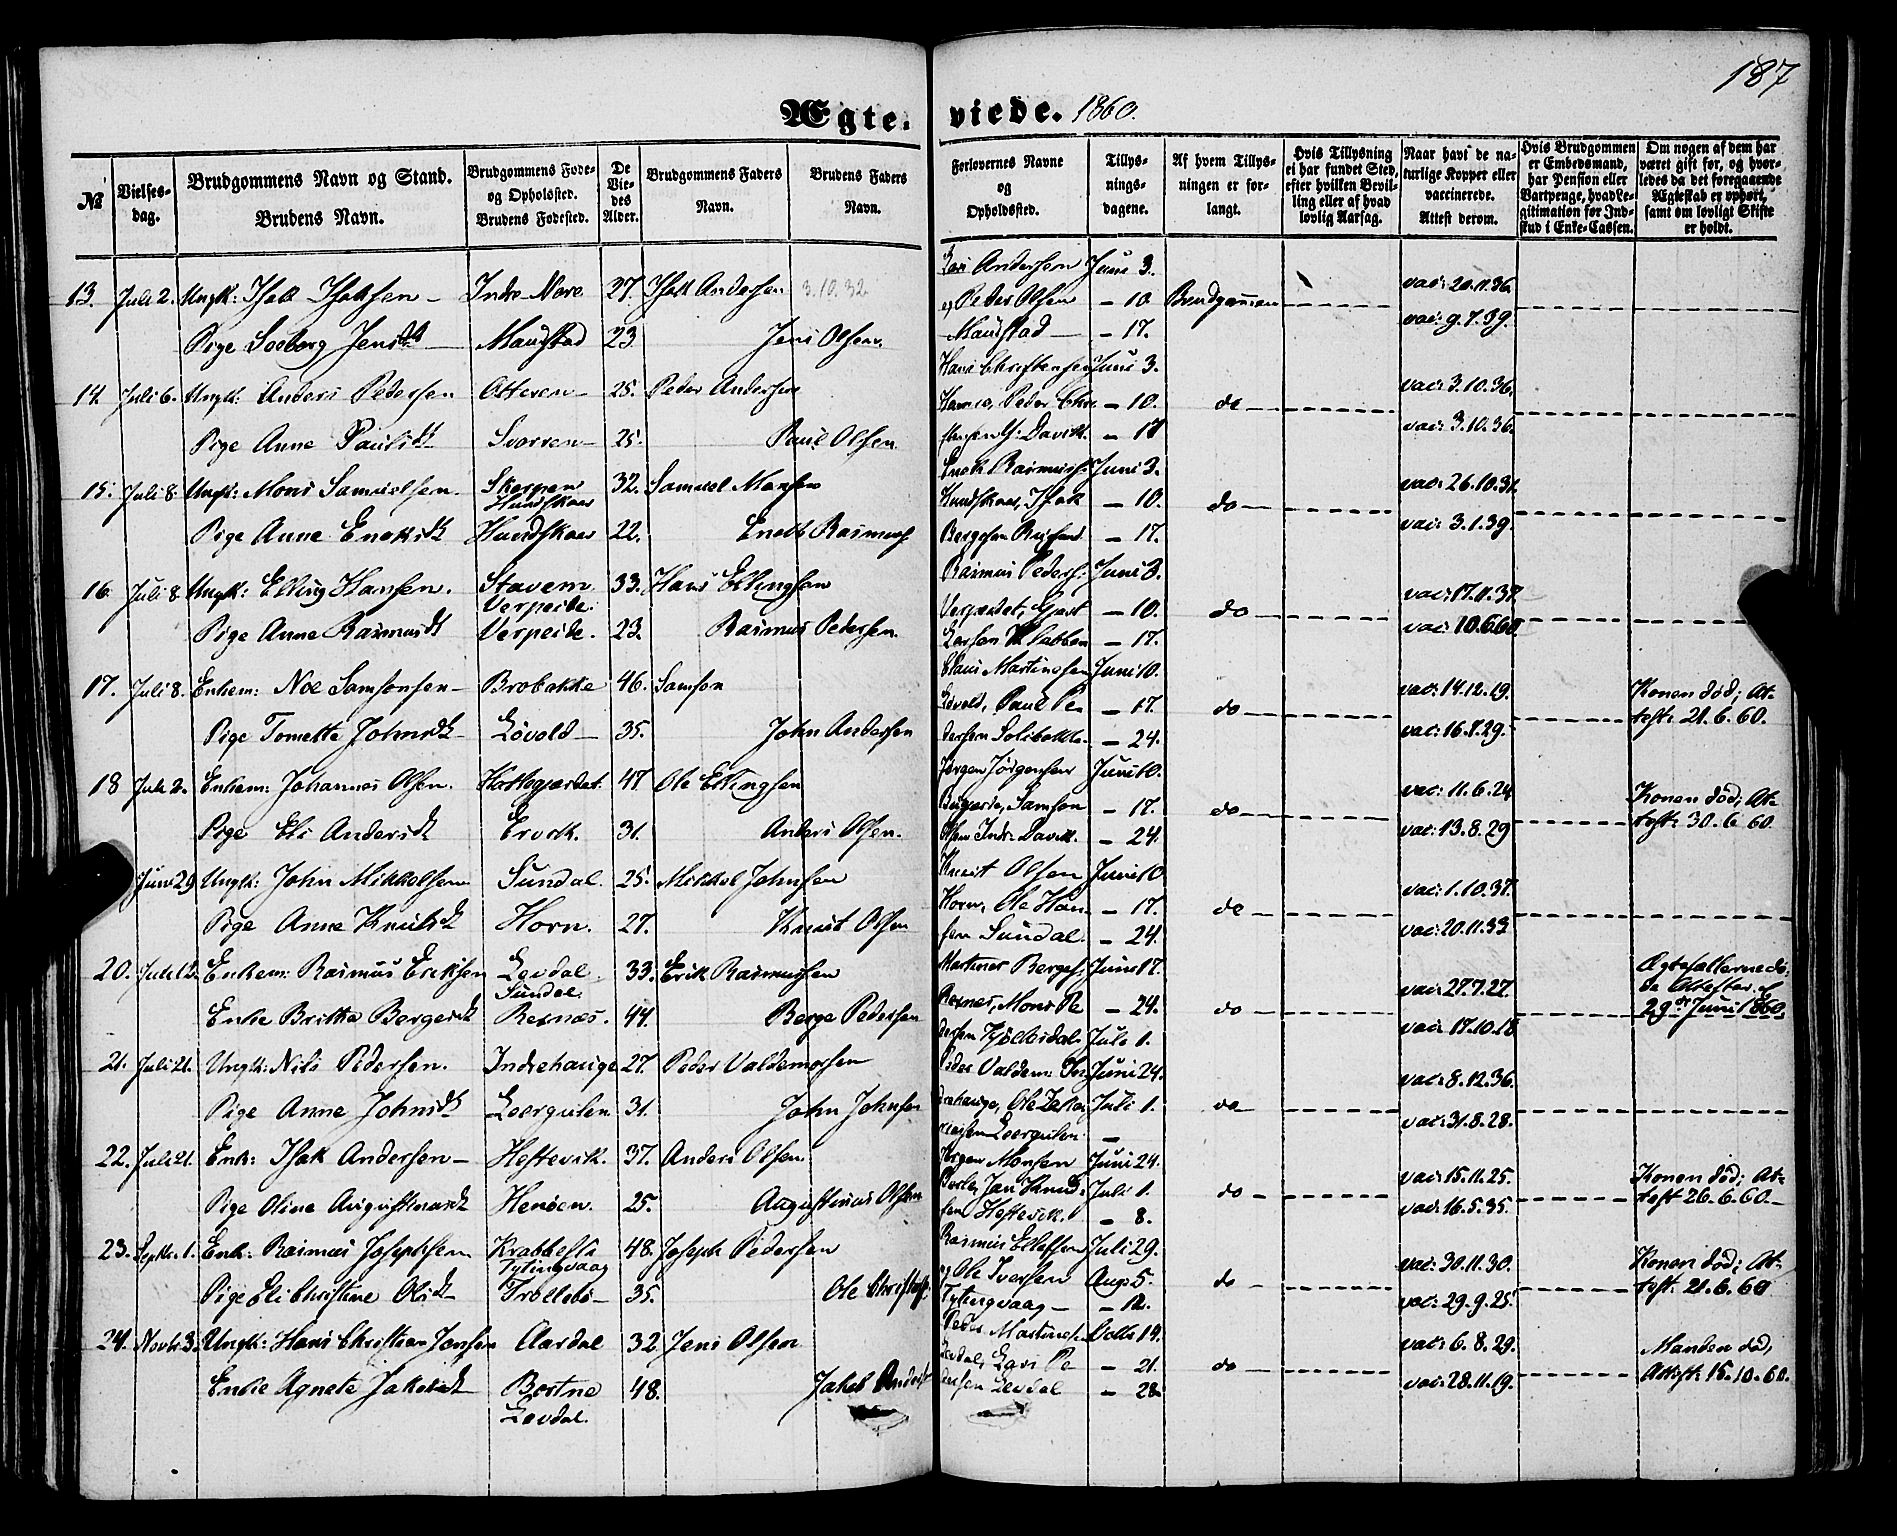 187
Ægte- viede. 1860.
№
Vielses-
dag.
Brudgommens Navn og Stand.
Brudens Navn.
Brudgommens Føde-
og Opholdssted.
Brudens Fødested.
De
Vie-
des
Alder.
Brudgommens Faders
Navn.
Brudens Faders
Navn.
Forlovernes Navne
og
Opholdssted.
Tillys-
nings-
dagene.
Af hvem Tillys-
ningen er for-
langt.
Hvis Tillysning
ei har fundet Sted,
efter hvilken Bevil-
ling eller af hvad
lovlig Aarsag.
Naar havt de na-
turlige Kopper eller
vaccinerede.
Attest derom.
Hvis Brudgommen
er Embedsmand,
har Pension eller
Vartpenge, hvad Le-
gitimation for Ind-
skud i Enke-Cassen.
Om nogen af dem har
været gift før, og hvor-
ledes da det foregaaende
Ægteskab er ophørt,
samt om lovligt Skifte
er holdt.
13. Juli 2. Ungk: Isak Isaksen Indre Nore 27. Isak Andersen 3.10.32 Andersen Juni 3. vac: 20.11.36.
og Peder Olsen - 10. Brudgommen
Pige Soeborg Jensdt Maurstad 23 Jens Olsen Maurstad - 17. vac: 9.7.39.
14. Juli 6. Ungk: Anders Pedersen Otteren 25. Peder Andersen Hans Christensen Juni 3. vac: 3.10.36.
Peder Chri - 10. do
Pige Anne Paulsdt Svorren 25. Paul Olsen stensen Y: Davik. - 17 vac: 3.10.36.
15. Juli 8. Ungk: Mons Samuelsen 32. Samuel Monsen Enok Rasmuss. Juni 3. vac: 26.10.31.
Hundskaar Hundskaar, Isak - 10. do
Pige Anne Enoksdt Hundskaar 22. Enok Rasmuss. - 17. vac: 3.1.39.
16. Juli 8. Ungk: Elling Hansen. Stavem 33. Hans Ellingsen Rasmus Peders. Juni 3. vac: 17.11.37.
Verpeide. - 10. do
Pige Anne Rasmusdt Verpeide. 23. Rasmus Pedersen. - 17. vac: 10.6.60
17. Juli 8. Enkem: Noe Samsonsen Brobakke 46. Samson Claus Martinesen Juni 10. vac: 14.12.19. Konen død; At-
Løvold, Paul Pe - 17. do test 21.6.60.
Pige Tomette Johnsdt Løvold 35. John Andersen dersen - 24. vac: 16.7.29.
18 Juli 2. Enkem: Johannes Olsen. 47 Ole Ellingsen Jørgen Jørgensen Juni 10. vac: 11.6.24 Konen død; At-
Samson - 17. do test 30.6.60.
Pige Eli Andersdt Ervik. 31. Anders Olsen. Olsen Indr: Davik. - 24. vac: 13.8.29
Juni 29 Ungk: John Mikkelsen Sundal. 25. Mikkel Johnsen Knut Olsen Juni 10 vac: 1.10.37.
Horn, Ole Han - 17. do
Pige Anne Knutsdt Horn. 27. Knut Olsen sen Sundal. - 24. vac: 20.11.33
20. Juli 12. Enkem: Rasmus Eriksen Levdal 33. Erik Rasmussen Martines Berges. Juni 17. vac: 27.7.27. Ægtefællerne dø-
Sundal. Rexnes, Mons Pe - 24. do de Attester af
Enke Britha Bergesdt Rexnæs. 44. Berge Pedersen dersen Juli 1. vac: 17.10.18 29de Juni 1860.
21. Juli 21. Ungk: Nils Pedersen. Indrehauge 27. Peder Valdemarsen Peder Valdem: In- Juni 24. vac: 8.12.36.
drehauge, Ole Zaka Juli 1. do
Pige Anne Johnsdt Leergulen 31. John Johnsen riasen Leergulen. - vac: 31.8.28.
22. Juli 21. Enk: Isak Andersen Heftevik. 37. Anders Olsen Jørgen Monsen Juni 24. vac: 15.11.25. Konen død; At-
Jan Knud- Juli 1. do test 26.6.60.
Pige Oline Augustinusdt Henøen. 25. Augustinus Olsen sen Heftevik. - 8. vac: 16.5.35.
23. Septr. 1. Enk: Rasmus Josephsen 48. Joseph Pedersen Rasmus Ellefsen Juli 29. vac: 30.11.30. Konen død; At-
Tytingvaag og Ole Iversen Aug: 5. do test. 21.6.60
Pige Eli Christine Olsdt Trollebø 35. Ole Christofs. Tytingvaag - 12. vac: 29.9.25.
24. Novbr 3. Ungk: Hans Christian Jensen Aardal 32 Jens Olsen Peder Martines. Octbr 14. vac: 6.8.29. Manden død,
Levdal, Lars Pe - 21. do Attest 15.10.60.
Enke Agnete Jakobsdt Bortne 48. Jakob Anders. dersen Levdal - 28. vac: 28.11.19.
Levdal.